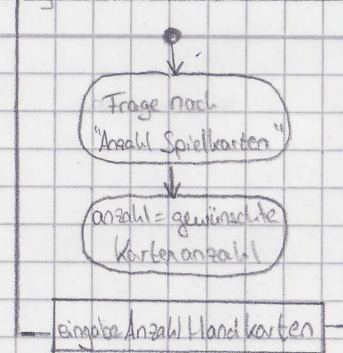 Frage nach
"Anzahl Spielkarten"
anzahl = gewünschte
Kartenanzahl
eingabeAnzahlHandkarten